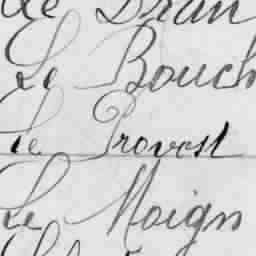 Le Dran
Le Bouch
Le Provost
Le Moign